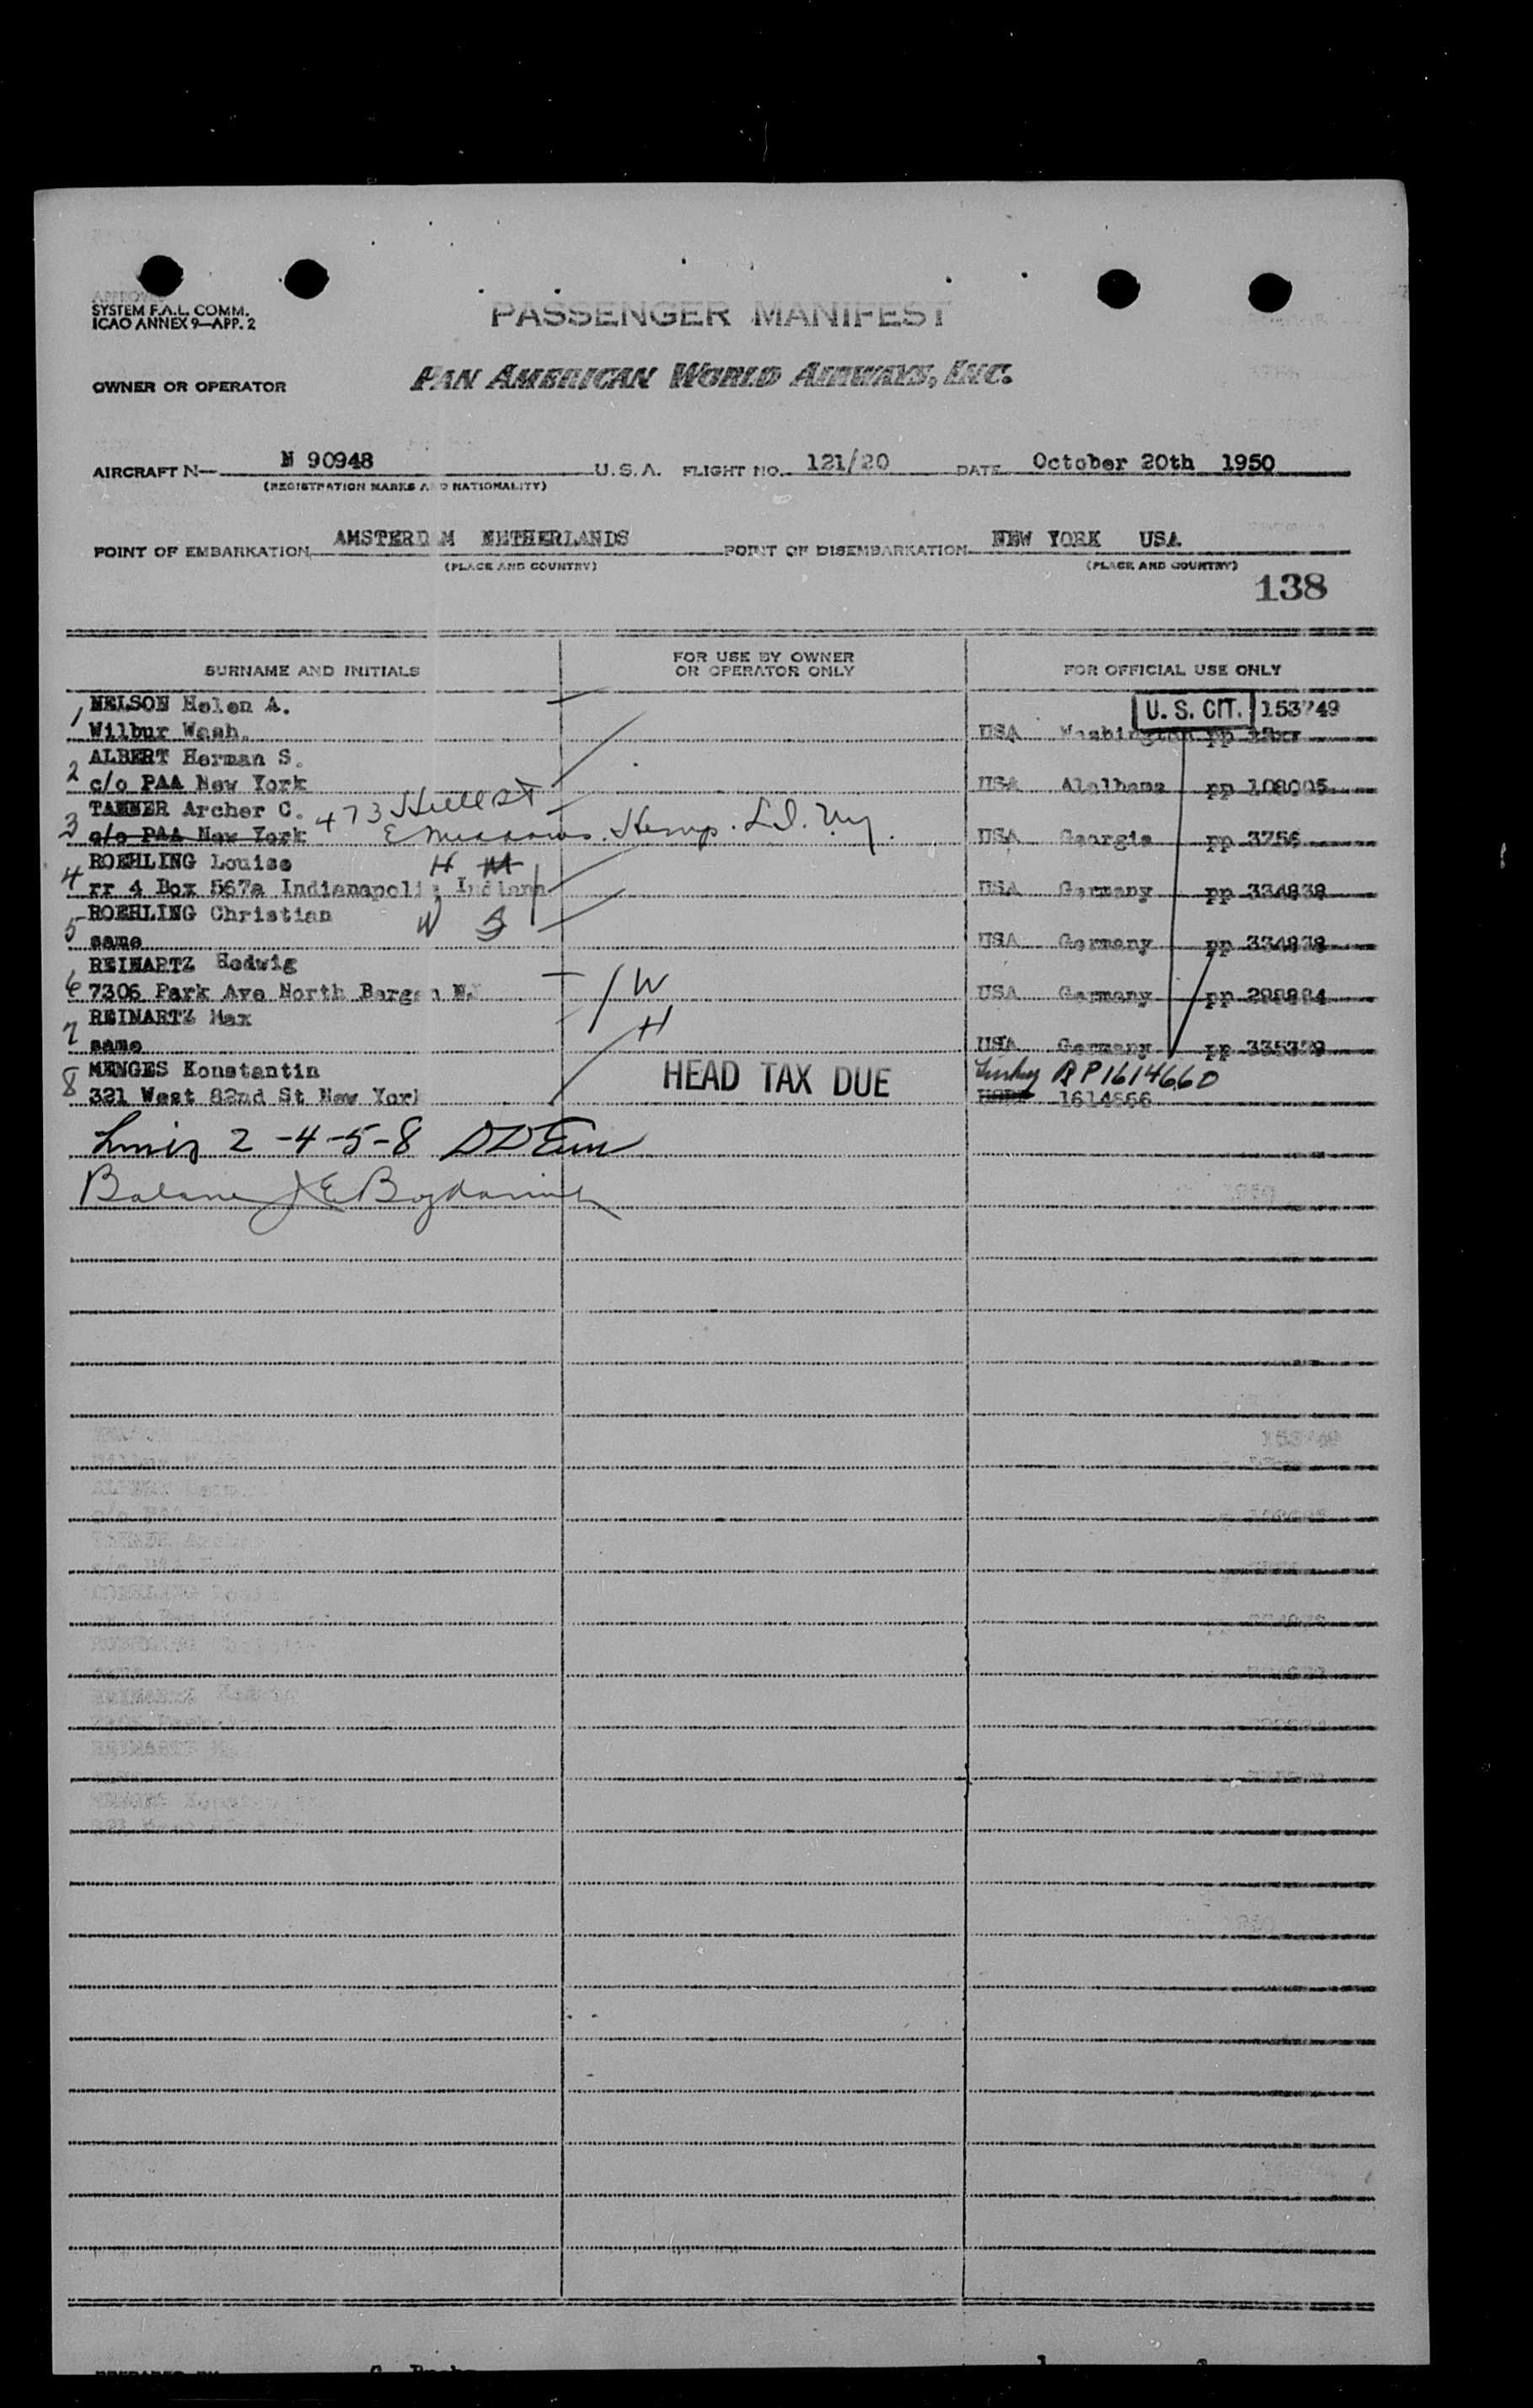 SYSTEM F.A.L. COMM.
ICAO ANNEX 9—APP. 2
PASSENGER MANIFEST
OWNER OR OPERATOR PAN AMERICAN WORLD AIRWAYS, INC.
AIRCRAFT N— N 90948 U.S.A. FLIGHT NO. 121/20 DATE October 20th 1950
(REGISTRATION MARKS AND NATIONALITY)
POINT OF EMBARKATION AMSTERD M NETHERLANDS POINT OF DISEMBARKATION NEW YORK USA
(PLACE AND COUNTRY) (PLACE AND COUNTRY)
138
SURNAME AND INITIALS FOR USE BY OWNER OR OPERATOR ONLY FOR OFFICIAL USE ONLY
1 NELSON Helen A. U. S. CIT. 153749
Wilbur Wash. USA Washington pp
2 ALBERT Herman S.
c/o PAA New York USA pp
3 TANNER Archer C. 473 Hill St
c/o PAA New York E Meadows. Hemp. L.I. N.Y. USA Georgia pp 3756
4 ROEHLING Louise H M
rr 4 Box 567a Indianapolis Indiana USA Germany pp
5 ROEHLING Christian W
same USA Germany pp
6 REINARTZ Hedwig W
7306 Park Ave North Bergen NJ USA Germany pp
7 REINARTZ Max H
same USA Germany pp
8 MENGES Konstantin HEAD TAX DUE Turkey RP1614660
321 West 82nd St New York 1614666
2-4-5-8